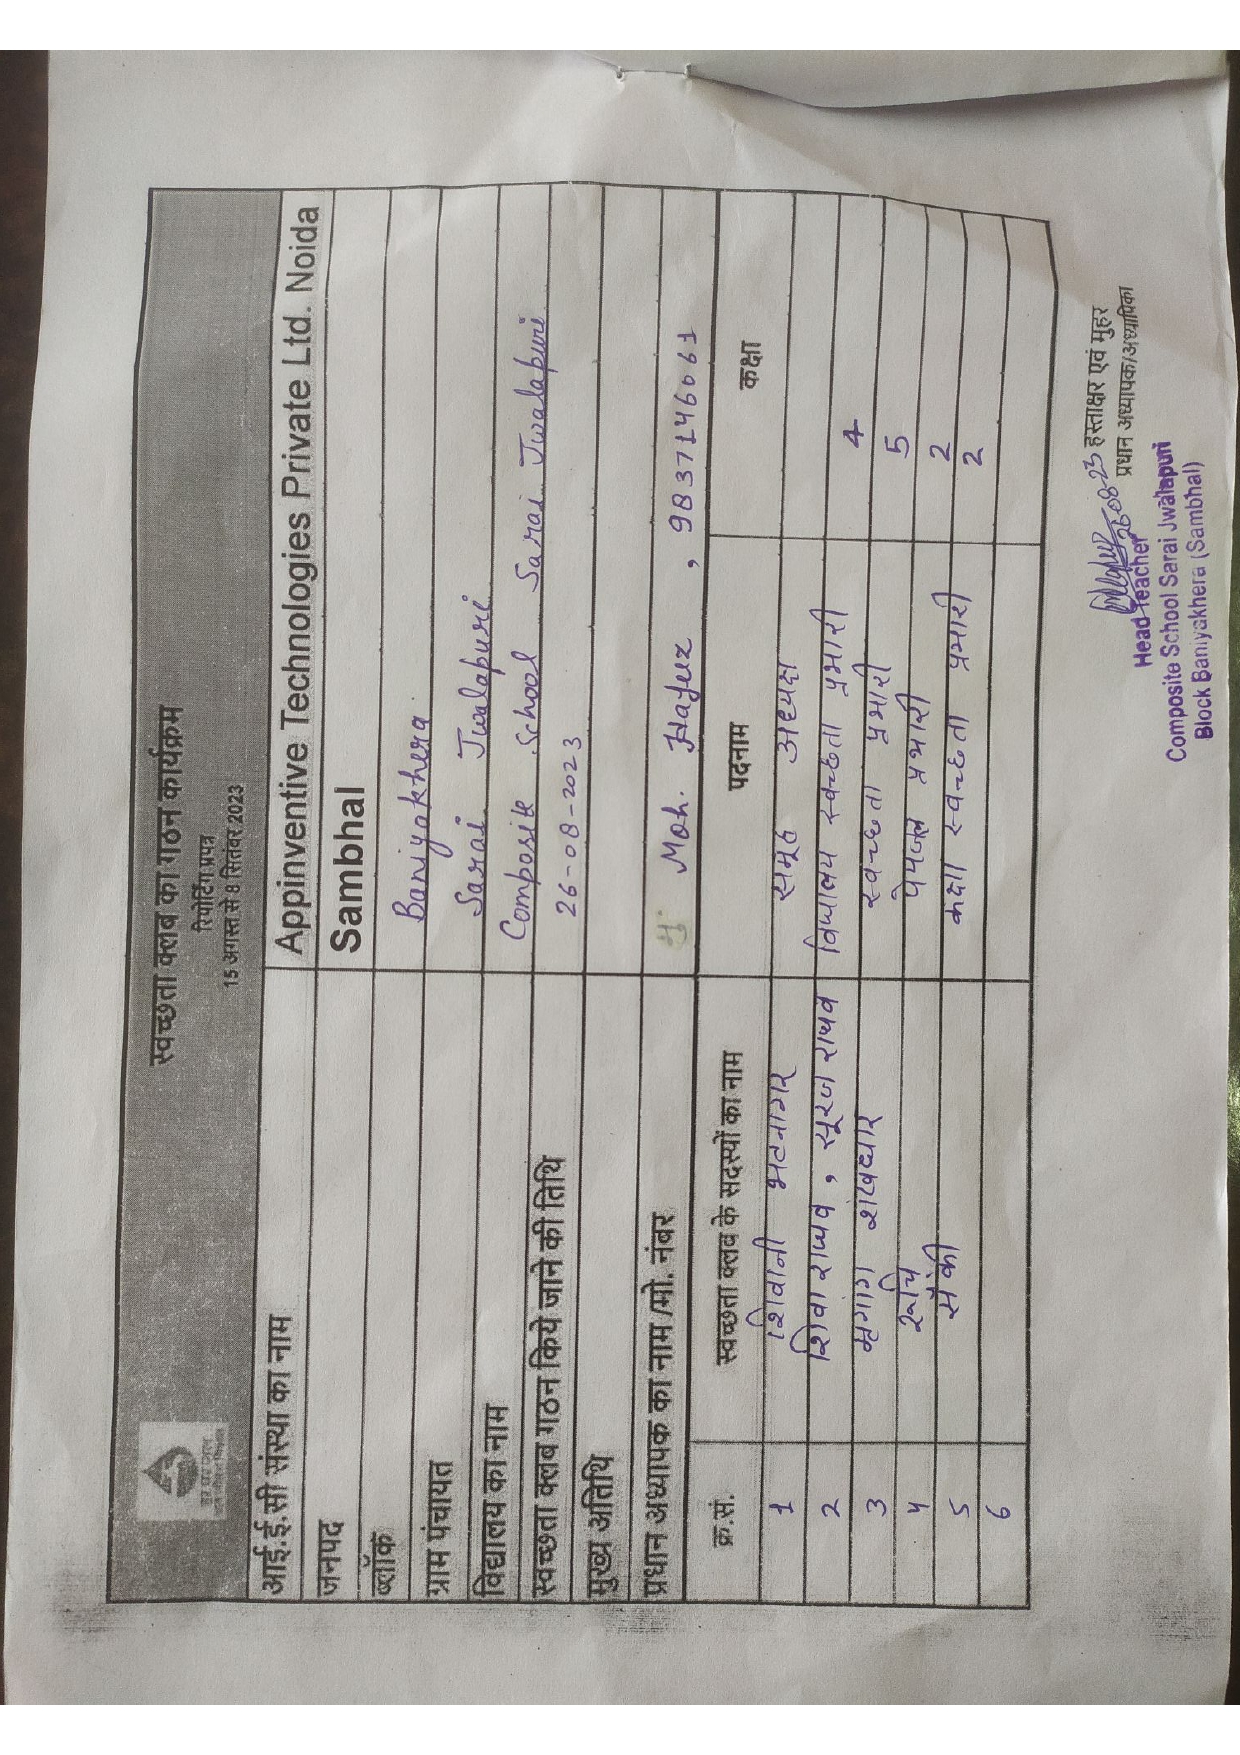 स्वच्छता क्लब का गठन कार्यक्रम
रिपोर्टिंग प्रपत्र
15 अगस्त से 8 सितंबर 2023
हर घर जल
जल जीवन मिशन
आई.ई.सी संस्था का नाम Appinventive Technologies Private Ltd. Noida
जनपद Sambhal
ब्लॉक Baniyakhera
ग्राम पंचायत Sarai Jwalapuri
विद्यालय का नाम Composite School Sarai Jwalapuri
स्वच्छता क्लब गठन किये जाने की तिथि 26-08-2023
मुख्य अतिथि
प्रधान अध्यापक का नाम /मो. नंबर Moh. Hafuz , 9837146061
क्र.सं. स्वच्छता क्लब के सदस्यों का नाम पदनाम कक्षा
1 शिवानी भटनागर समूह अध्यक्ष
2 शिवा राघव , सूरज राघव विद्यालय स्वच्छता प्रभारी 4
3 मृगांग शंखधार स्वच्छता प्रभारी 5
4 रूचि पेयजल प्रभारी 2
5 सैंकी कक्षा स्वच्छता प्रभारी 2
6
26-08-23 हस्ताक्षर एवं मुहर
प्रधान अध्यापक/अध्यापिका
Head Teacher
Composite School Sarai Jwalapuri
Block Baniyakhera (Sambhal)